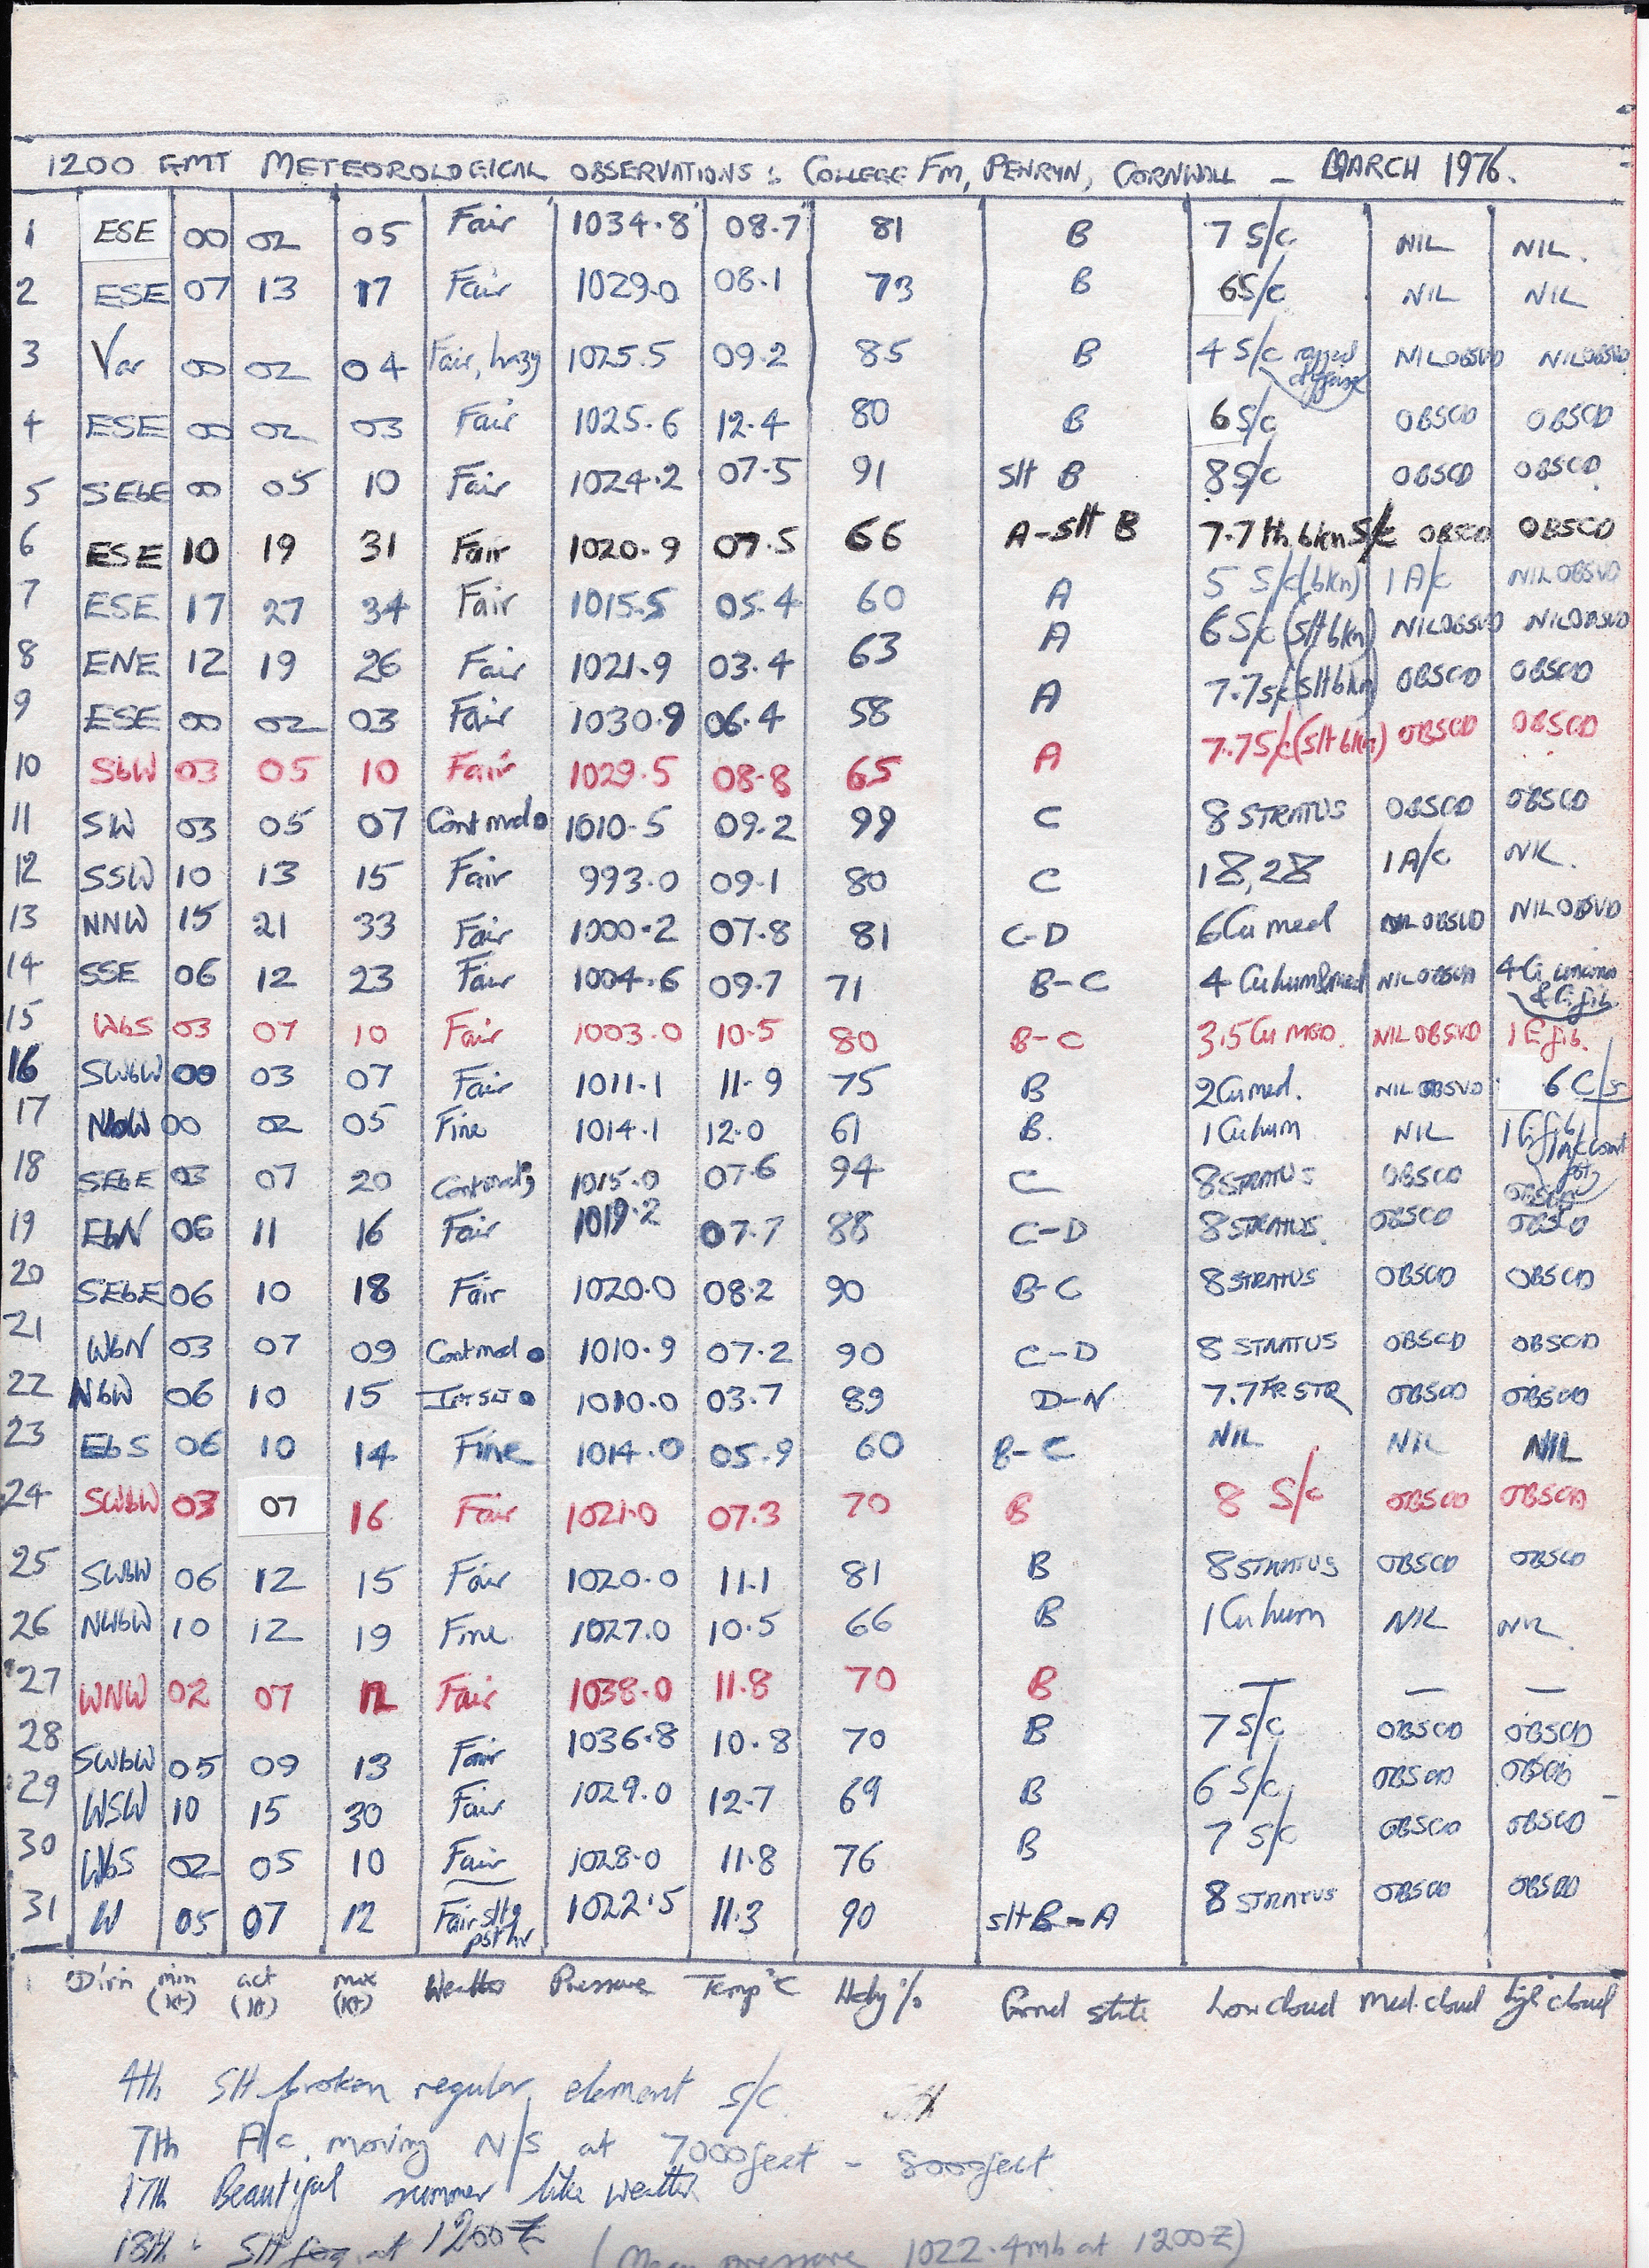 1200 GMT METEOROLOGICAL OBSERVATIONS: COLLEGE FM, PENRYN, CORNWALL – MARCH 1976.
1 ESE 00 02 05 Fair 1034.8 08.7 81 B 7 S/c NIL NIL.
2 ESE 07 13 17 Fair 1029.0 08.1 73 B 6S/c NIL NIL
3 Var 00 02 04 Fair, hazy 1025.5 09.2 85 B 4 S/c ragged NILOBSVD NILOBSVD
4 ESE 00 02 03 Fair 1025.6 12.4 80 B 6 S/c OBSCD OBSCD
5 SEbE 00 05 10 Fair 1024.2 07.5 91 slt B 8S/c OBSCD OBSCD
6 ESE 10 19 31 Fair 1020.9 07.5 66 A-slt B 7.7 bkn S/c OBSCD OBSCD
7 ESE 17 27 34 Fair 1015.5 05.4 60 A 5 S/c(bkn) 1 A/c NIL OBSVD
8 ENE 12 19 26 Fair 1021.9 03.4 63 A 6 S/c (slt bkn) NILOBSVD NILOBSVD
9 ESE 00 02 03 Fair 1030.9 06.4 58 A 7.7S/c(slt bkn) OBSCD OBSCD
10 SbW 03 05 10 Fair 1029.5 08.8 65 A 7.7S/c(slt bkn) OBSCD OBSCD
11 SW 03 05 07 Cont mod 1010.5 09.2 99 C 8 STRATUS OBSCD OBSCD
12 SSW 10 13 15 Fair 993.0 09.1 80 C 18,28 1 A/c NIL.
13 NNW 15 21 33 Fair 1000.2 07.8 81 C-D 6Cu med NIL OBSVD NIL OBSVD
14 SSE 06 12 23 Fair 1004.6 09.7 71 B-C 4 Cu hum&med NIL OBSVD 4 Ci uncinus & Ci fib.
15 WbS 03 07 10 Fair 1003.0 10.5 80 B-C 3.5 Cu MED. NIL OBSVD 1 Ci fib.
16 SWbW 00 03 07 Fair 1011.1 11.9 75 B 2Cu med. NIL OBSVD 6 C/s
17 NbW 00 02 05 Fine 1014.1 12.0 61 B. 1 Cu hum NIL 1 Ci fib,
18 SEbE 03 07 20 Cont mod 1015.0 07.6 94 C 8STRATUS OBSCD OBSCD
19 EbN 06 11 16 Fair 1019.2 07.7 88 C-D 8STRATUS. OBSCD OBSCD
20 SEbE 06 10 18 Fair 1020.0 08.2 90 B-C 8STRATUS OBSCD OBSCD
21 WbN 03 07 09 Cont mod 1010.9 07.2 90 C-D 8 STRATUS OBSCD OBSCD
22 NbW 06 10 15 Int slt 1010.0 03.7 89 D-N 7.7 FR STR OBSCD OBSCD
23 EbS 06 10 14 Fine 1014.0 05.9 60 B-C NIL NIL NIL
24 SWbW 03 07 16 Fair 1021.0 07.3 70 B 8 S/c OBSCD OBSCD
25 SWbW 06 12 15 Fair 1020.0 11.1 81 B 8STRATUS OBSCD OBSCD
26 NWbW 10 12 19 Fine. 1027.0 10.5 66 B 1 Cu hum NIL NIL.
27 WNW 02 07 12 Fair 1038.0 11.8 70 B — — —
28 SWbW 05 09 13 Fair 1036.8 10.8 70 B 7 S/c OBSCD OBSCD
29 WSW 10 15 30 Fair 1029.0 12.7 69 B 6 S/c, OBSCD OBSCD
30 WbS 02 05 10 Fair 1028.0 11.8 76 B 7 S/c OBSCD OBSCD
31 W 05 07 12 Fair slt pst hr 1022.5 11.3 90 slt B-A 8 STRATUS OBSCD OBSCD
Dirn min (kt) act (kt) max (kt) Weather Pressure Temp °C Hdy % Grnd state Low cloud Med. cloud high cloud
4th Slt broken regular element S/c. 5th
7th A/c moving N/S at 7000feet – 8000feet
17th Beautiful summer like weather
18th Slt fog at 1200Z (Mean pressure 1022.4mb at 1200Z)